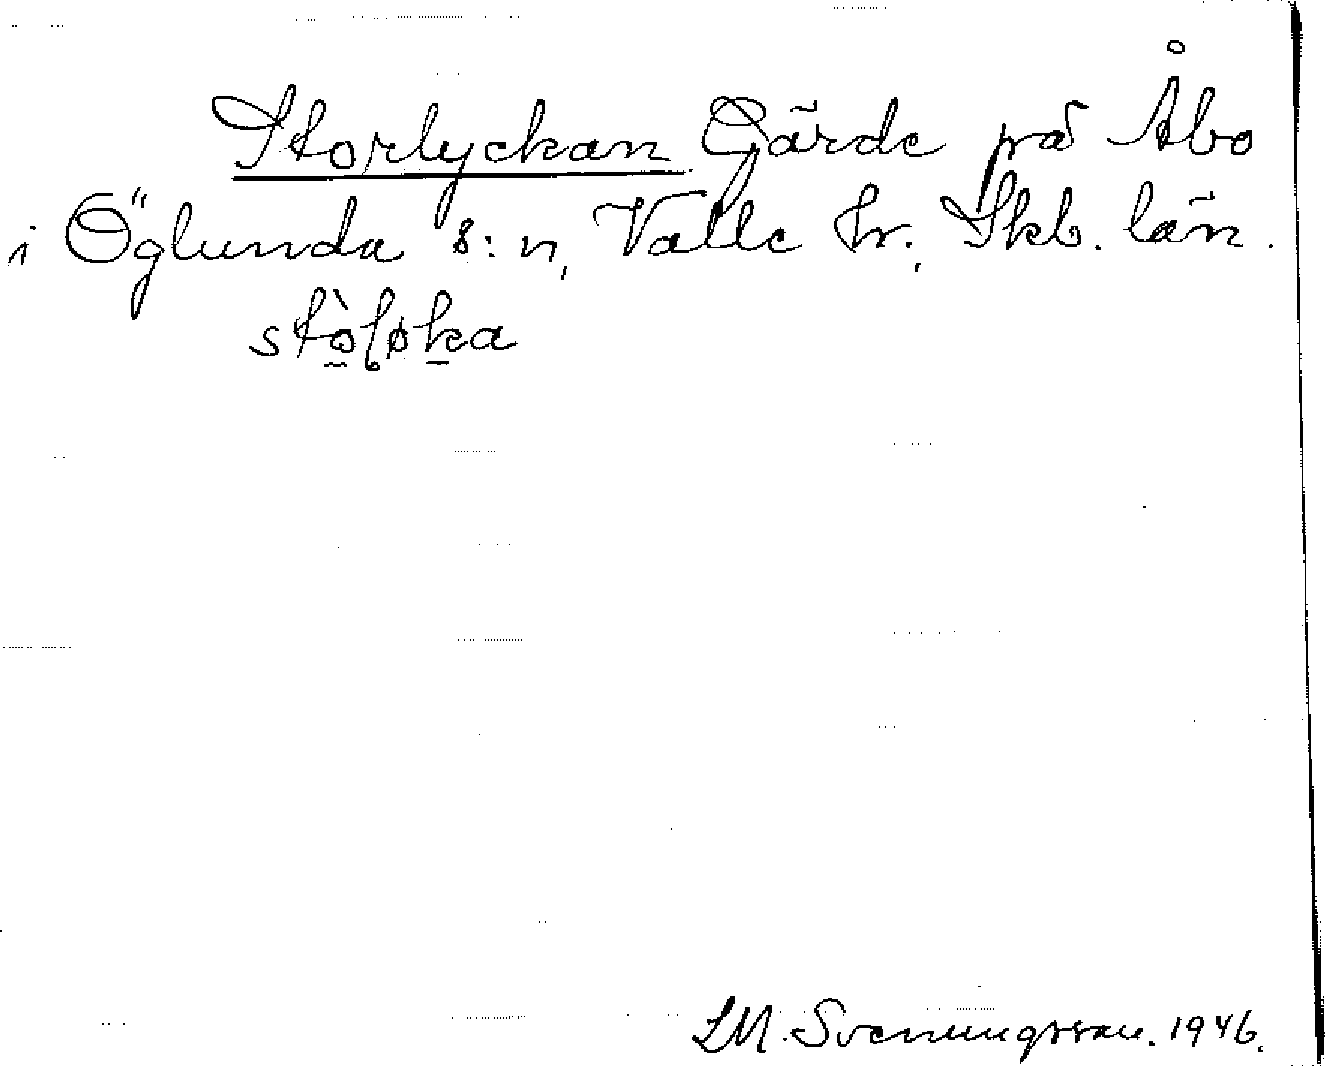 Storlyckan Gärde på Åbo
i Öglunda s:n, Valle hr, Skb. län.
stò̰lø̀ka
L M. Svenungsson. 1946.